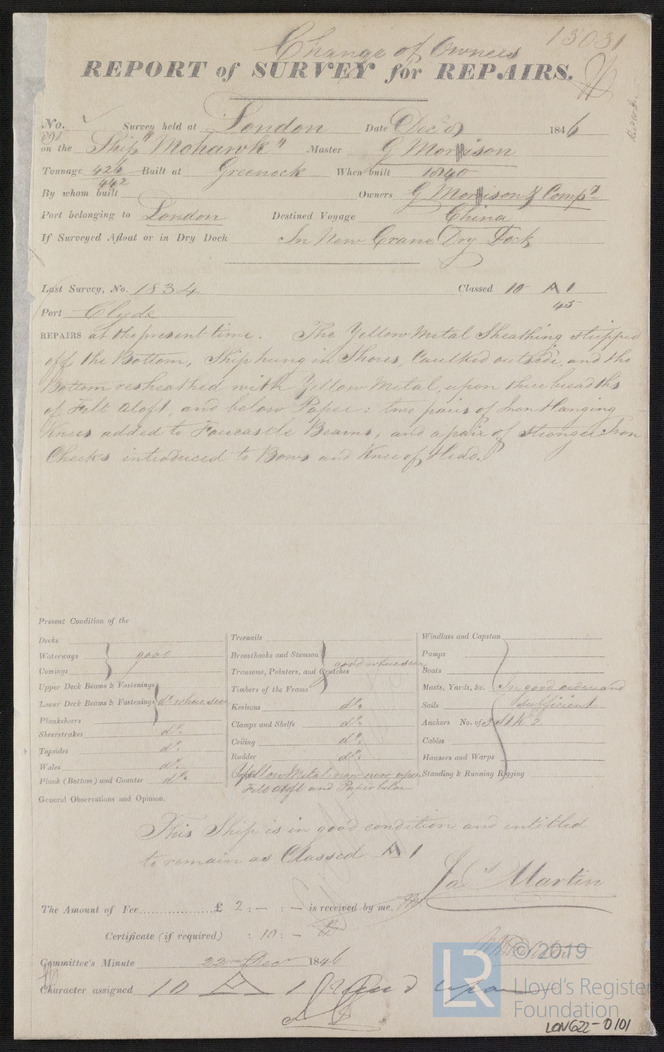 Change of Owners 13031
REPORT of SURVEY for REPAIRS.
No. Survey held at London Date Dec 1846
on the Ship "Mohawk" Master G Morrison
Tonnage 426 Built at Greenock When built 1840
442
By whom built Owners G Morrison & Compy
Port belonging to London Destined Voyage China
If Surveyed Afloat or in Dry Dock In New Crane Dry Dock
Last Survey, No. 1834 Classed 10 A 1
45
Port Clyde
REPAIRS at the present time. The Yellow Metal Sheathing stripped
off the Bottom, Ship hung in Shores, Caulked outside, and the
Bottom resheathed with Yellow Metal, upon three breadths
of Felt aloft, and below Paper: two pairs of Iron Hanging
Knees added to Forecastle Beams, and a pair of stronger Iron
Cheeks introduced to Bows and Knee of Head.
Present Condition of the
Decks
Waterways good
Comings
Upper Deck Beams & Fastenings
Lower Deck Beams & Fastenings do where seen
Plansheers
Sheerstrakes do
Topsides do
Wales do
Plank (Bottom) and Counter do
Treenails
Breasthooks and Stemson
Transoms, Pointers, and Crutches good where seen
Timbers of the Frame
Keelsons do
Clamps and Shelfs do
Ceiling do
Rudder do
Yellow Metal new now upon
Felt aloft and Paper below
Windlass and Capstan
Pumps
Boats
Masts, Yards, &c. In good order and
Sails sufficient
Anchors No. of
Cables
Hausers and Warps
Standing & Running Rigging
General Observations and Opinion.
This Ship is in good condition and entitled
to remain as Classed A 1
Jas Martin
The Amount of Fee £ 2 : - : - is received by me,
Certificate (if required) : 10 : -
Committee's Minute 22nd Decr 1846
Character assigned 10 A 1
LR © 2019
Lloyd's Register
Foundation
LON622-0101